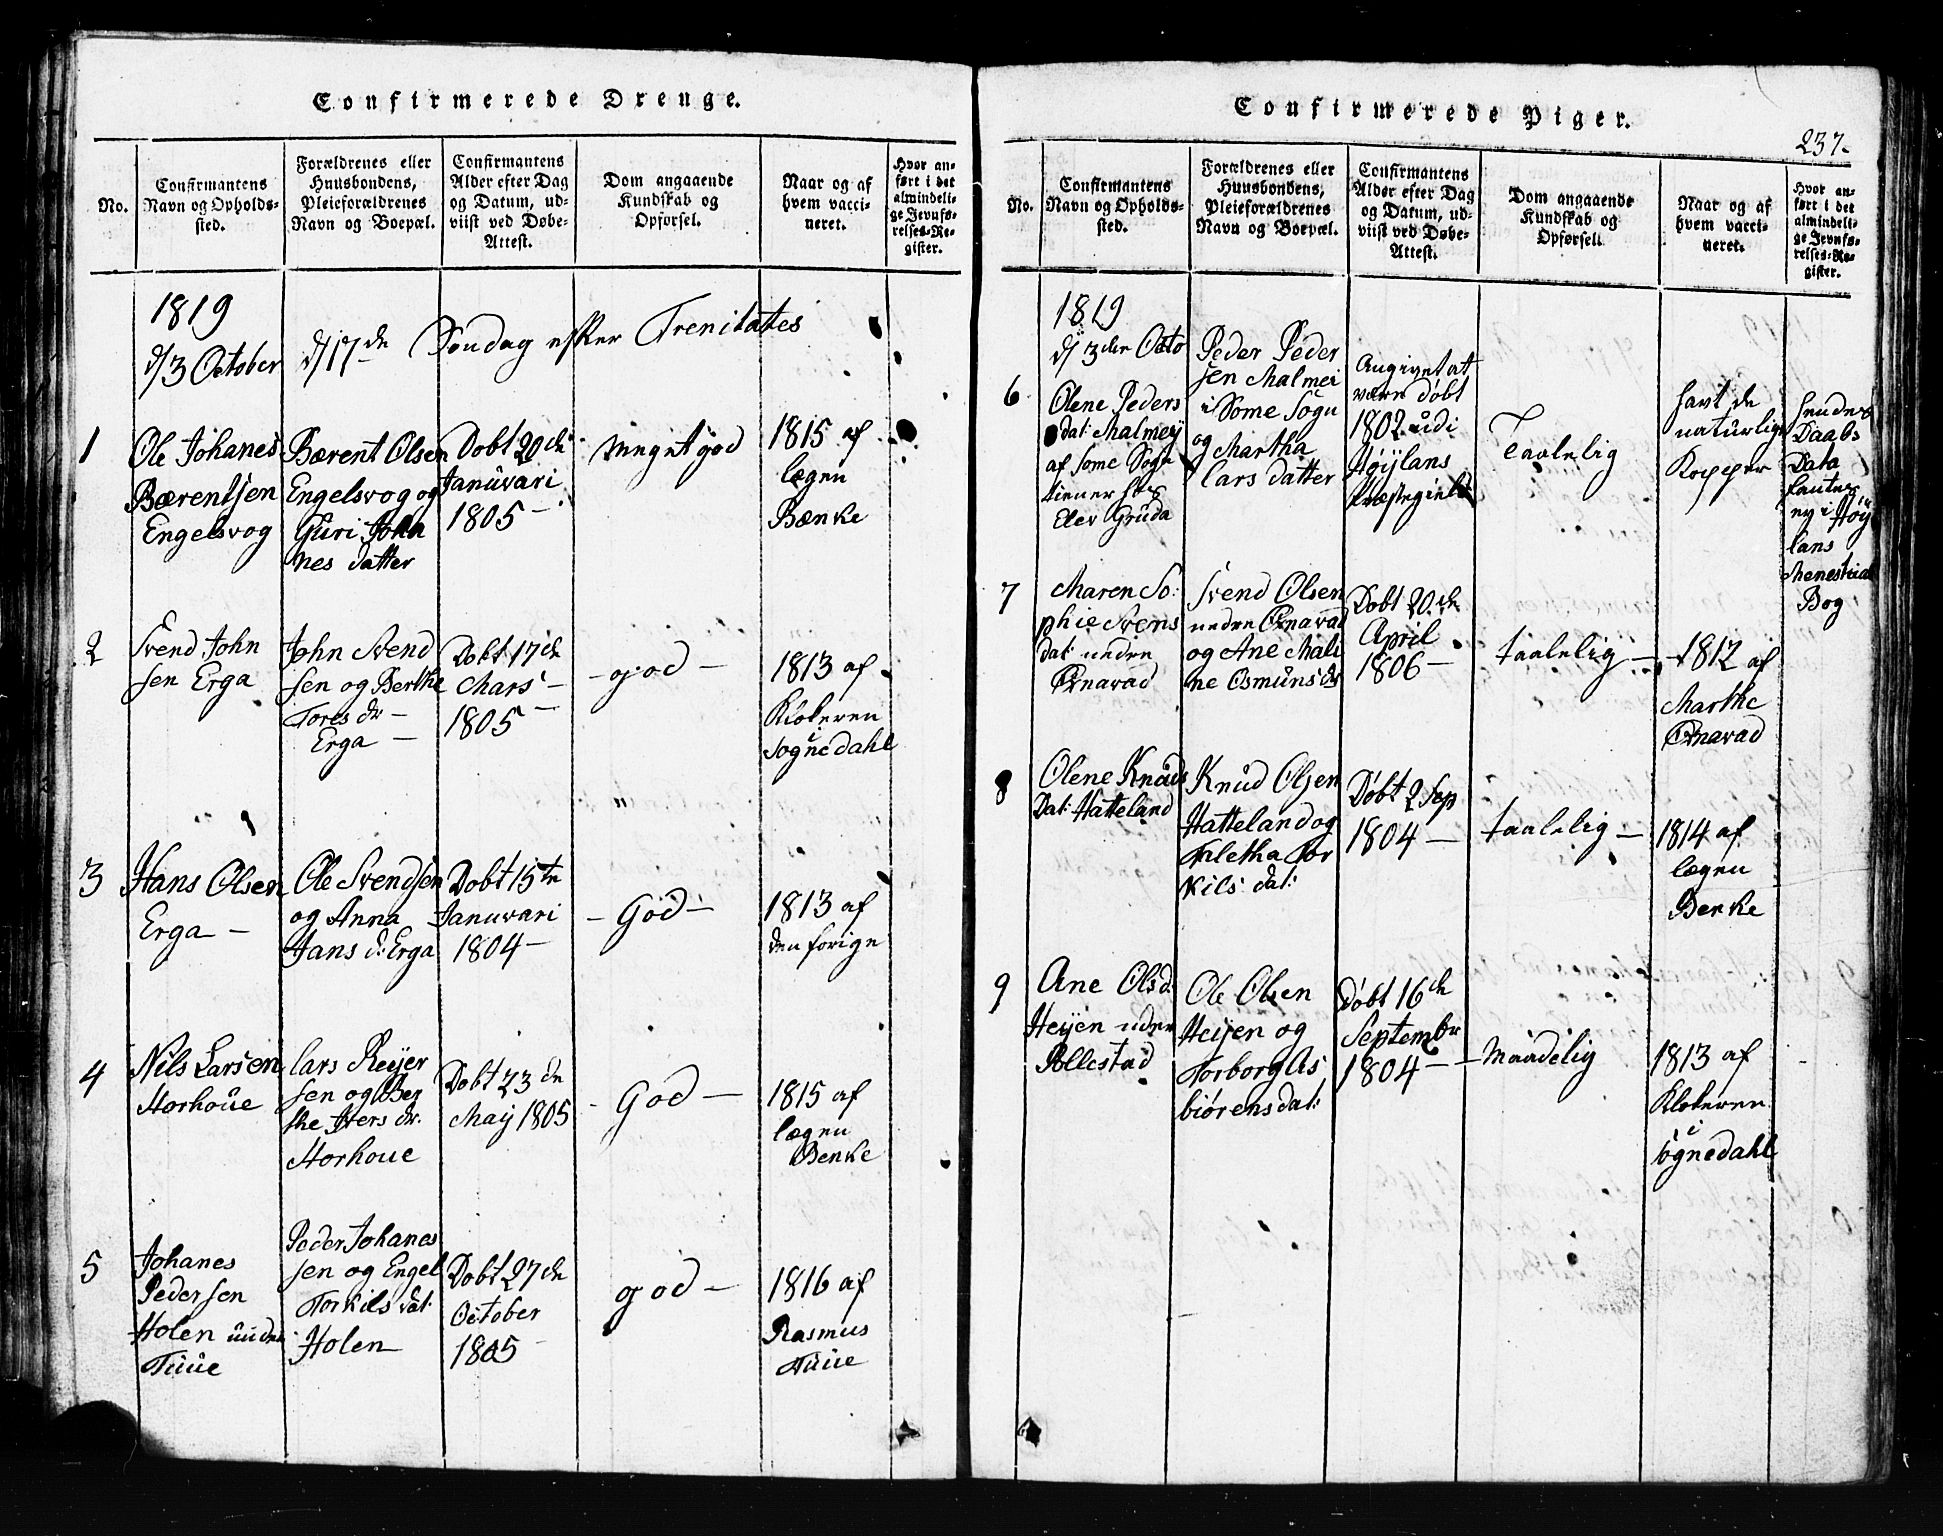 Confirmerede Drenge.
No.
Confirmantens
Navn og Opholds-
sted.
Forældrenes eller
Huusbondens,
Pleieforældrenes
Navn og Boepæl.
Confirmantens
Alder efter Dag
og Datum, ud-
viist ved Døbe-
Attest.
Dom angaaende
Kundskab og
Opførsel.
Naar og af
hvem vacci-
neret.
Hvor an-
ført i det
almindeli-
ge Jevnfø-
relses-Re-
gister.
1819
d/3 October
d/17de Søndag efter Trenitates
1
Ole Johanes
Bærentsen
Engelsvog
Bærent Olsen
Engelsvog og
Guri Joha
nes datter
Dobt 20de
Januvari
1805 -
meget god
1815 af
lægen
Bænke
2
Svend John
sen Erga
John Svend
sen og Berthe
Tores dr -
Erga -
Dobt 17de
Mars -
1805 -
- god -
1813 af
Klokeren
i
Sognedahl
3
Hans Olsen
Erga -
Ole Svendsen
og Anna
Jans d: Erga
Dobt 15te
Januvari
1804 -
- God -
1813 af
den forige
4
Nils Larsen
Horhoue
Lars Reyer
sen og Ber
the Ivers dr.
Horhoue
Dobt 23de
May 1805
- God -
1815 af
lægen
Benke
5
Johanes
Pedersen
Holen under
Tuue
Peder Johanes
sen og Engel
Torkils dat:
Holen
Dobt 27de
October
1805 -
god -
1816 af
Rasmus
Tuue
Confirmerede Piger.
237.
No.
Confirmantens
Navn og Opholds-
sted.
Forældrenes eller
Huusbondens,
Pleieforældrenes
Navn og Boepæl.
Confirmantens
Alder efter Dag
og Datum, ud-
viist ved Døbe-
Attest.
Dom angaaende
Kundskab og
Opførsel.
Naar og af
hvem vacci-
neret.
Hvor an-
ført i det
almindeli-
ge Jevnfø-
relses-Re-
gister.
1819
d/3die Octo
6
Olene Peders
dat: Malmey
af Some Sogn
tiener hos
Elev Gruda
Peder Peder
sen Malmei
i Some Sogn
og Martha
Lars datter
Angivet at
være døbt
1802 udi
Høijlans
Præstegield
Taalelig
havt de
naturlige
Kopper
hendes
Daabs
Data
ny i Høij
lans
Menestrial
Bog
7
Maren So:
phie Svens
dat: neden
Ornavad
Svend Olsen
neden Ornavad
og Ane Mali
ne Osmuns ds
Dobt 20de
April
1806 -
taalelig -
1812 af
Marthe
Ornavad
8
Olene Knuds
Dat: Hatteland
Knud Olsen
Hatteland og
Taletha Tor
kils dat:
Døbt 2 Sep
1804 -
taalelig -
1814 af
lægen
Benke
9
Ane Ols d:
Heijen under
Pollestad
Ole Olsen
Heijen og
Torborg Als
biørens dat:
Døbt 16de
Septembr
1804 -
maadelig
1813 af
Klokeren
i
Sognedahl